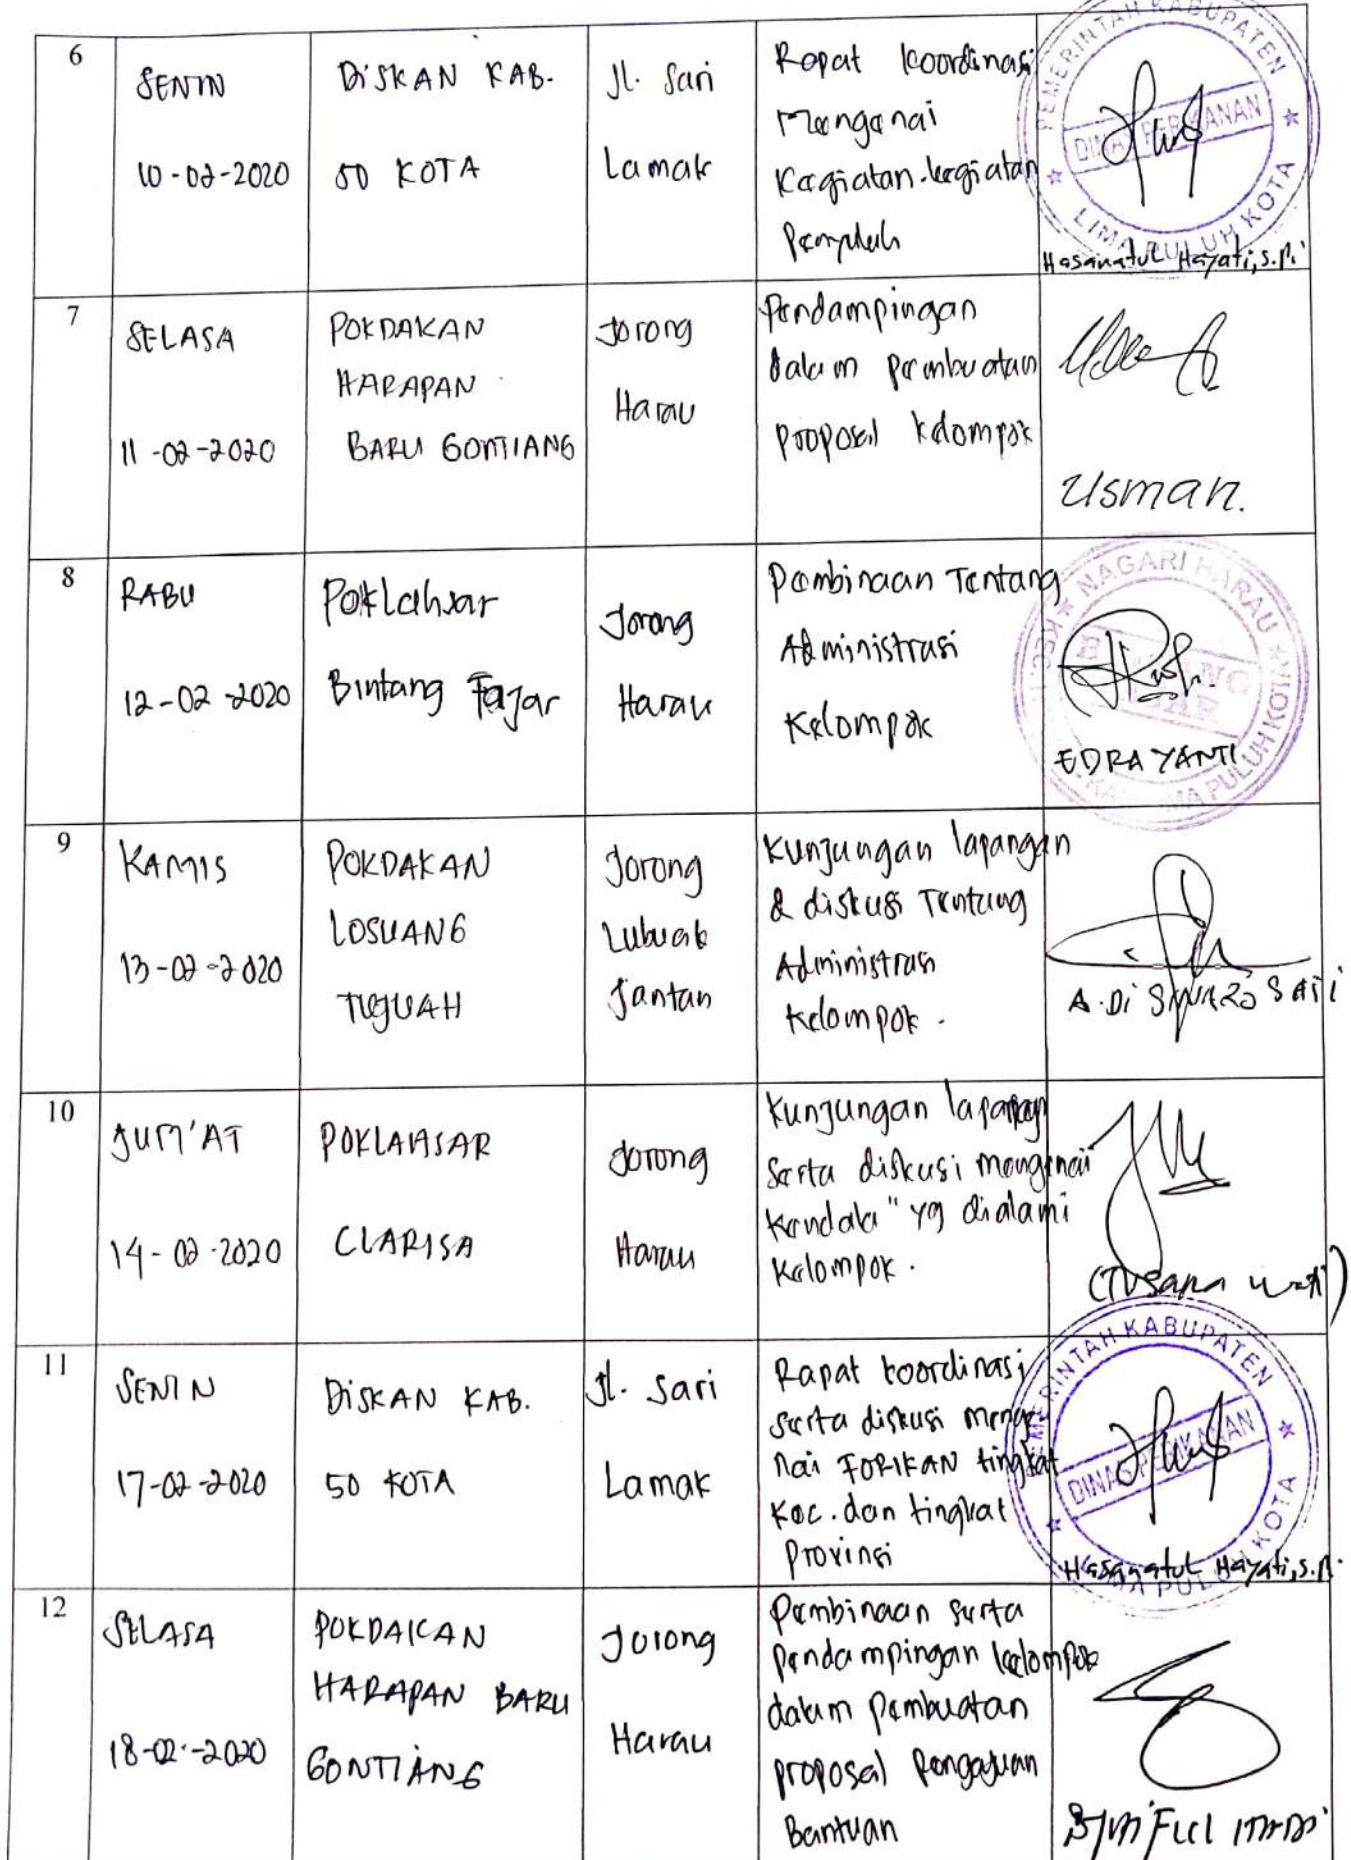 6
SENIN
10-02-2020
DISKAN KAB.
50 KOTA
Jl. Sari
Lamak
Rapat koordinasi
Mengenai
Kegiatan-kegiatan
Penyuluh
PEMERINTAH KABUPATEN
DINAS PERIKANAN
LIMA PULUH KOTA
Hasanatul Hayati, S.Pi.
7
SELASA
11-02-2020
POKDAKAN
HARAPAN
BARU GONTIANG
Jorong
Harau
Pendampingan
dalam pembuatan
proposal kelompok
Usman.
8
RABU
12-02-2020
Poklahsar
Bintang Fajar
Jorong
Harau
Pembinaan Tentang
Administrasi
Kelompok
NAGARI HARAU
PULUH KOTA
EDRA YANTI
9
KAMIS
13-02-2020
POKDAKAN
LOSUANG
TUGUAH
Jorong
Lubuak
Jantan
Kunjungan lapangan
& diskusi Tentang
Administrasi
Kelompok.
10
JUM'AT
14-02-2020
POKLAHSAR
CLARISA
Jorong
Harau
Kunjungan lapangan
Serta diskusi mengenai
Kendala" yg dialami
Kelompok.
11
SENIN
17-02-2020
DISKAN KAB.
50 KOTA
Jl. Sari
Lamak
Rapat koordinasi
serta diskusi menge-
nai FORIKAN tingkat
Kec. dan tingkat
Provinsi
PEMERINTAH KABUPATEN
DINAS PERIKANAN
LIMA PULUH KOTA
Hasanatul Hayati, S.Pi.
12
SELASA
18-02-2020
POKDAKAN
HARAPAN BARU
GONTIANG
Jorong
Harau
Pembinaan serta
Pendampingan kelompok
dalam Pembuatan
proposal Pengajuan
Bantuan